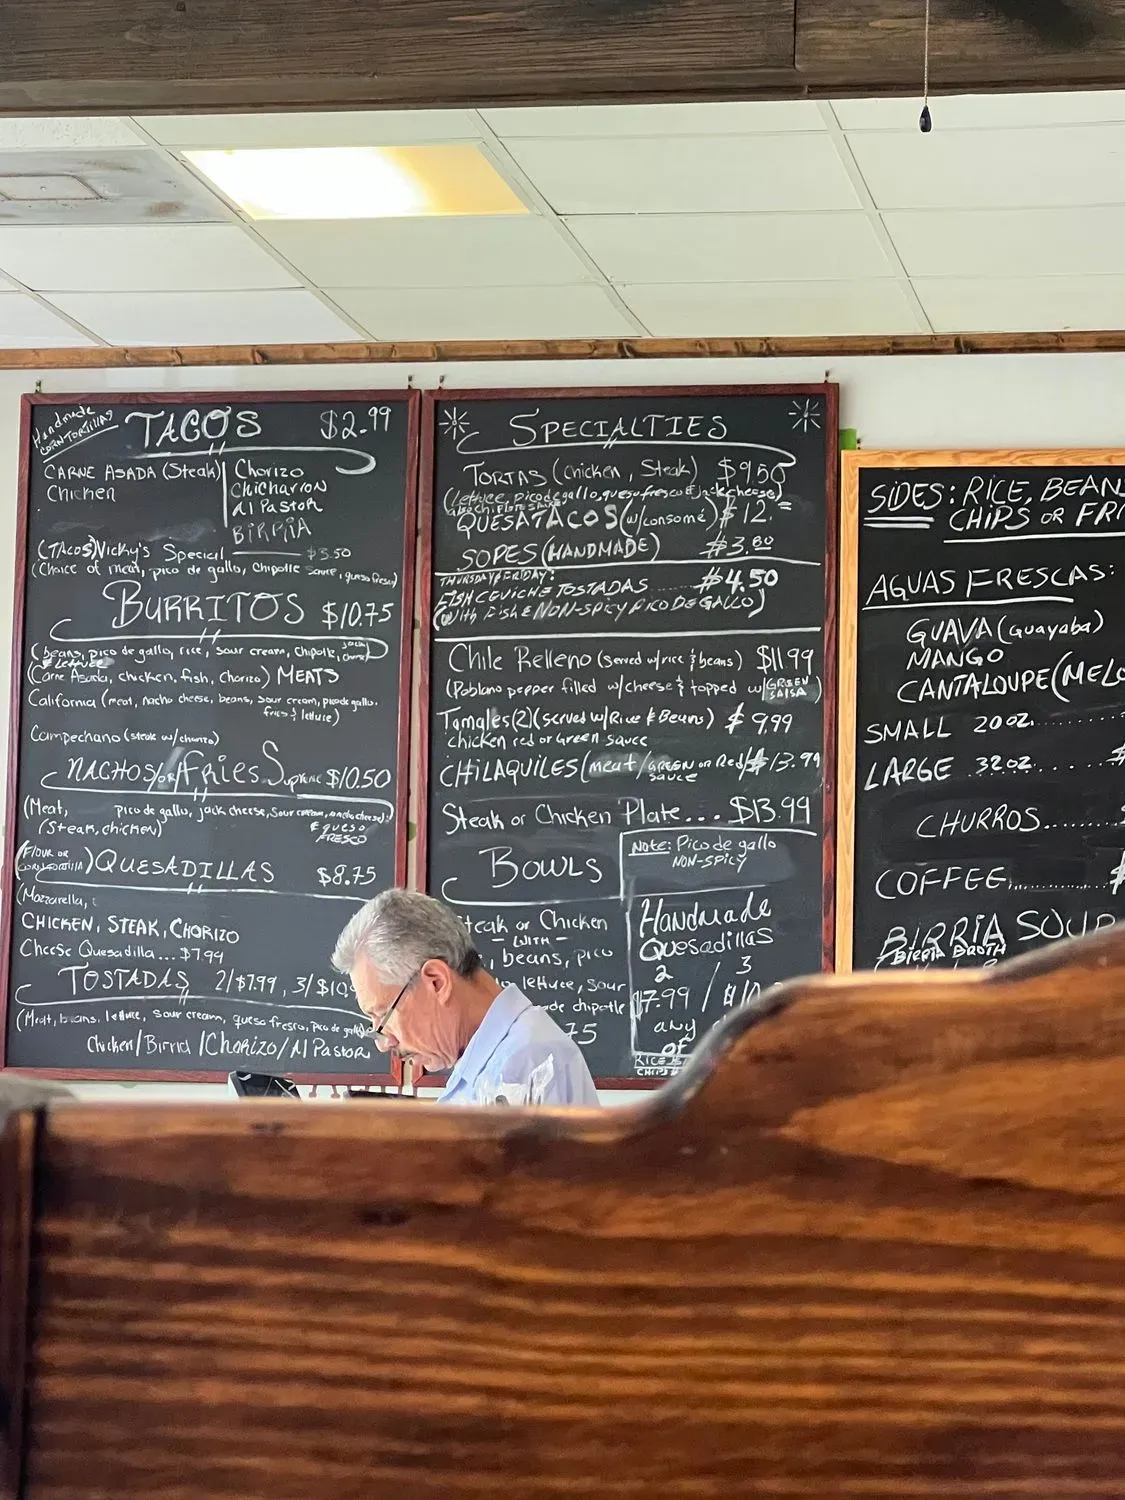 Handmade
CORN TORTILLAS
TACOS $2.99
CARNE ASADA (Steak)
Chicken
Chorizo
Chicharron
Al Pastor
BIRRIA
(TACOS) Vicky's Special $3.50
(Choice of meat, pico de gallo, Chipotle sauce, queso fresco)
BURRITOS $10.75
(beans, pico de gallo, rice, sour cream, chipotle, jack cheese)
& lettuce
(Carne Asada, chicken, fish, Chorizo) MEATS
California (meat, nacho cheese, beans, sour cream, pico de gallo,
fries & lettuce)
Campechano (steak w/chorizo)
NACHOS/OR Fries Supreme $10.50
(Meat, pico de gallo, jack cheese, sour cream, nacho cheese)
(Steak, chicken)
& QUESO
FRESCO
(FLOUR OR
CORN TORTILLA) QUESADILLAS $8.75
(Mozzarella,
CHICKEN, STEAK, CHORIZO
Cheese Quesadilla... $7.99
TOSTADAS 2/$7.99, 3/$10.
(Meat, beans, lettuce, sour cream, queso fresco, pico de gallo)
Chicken/Birria/Chorizo/Al Pastor
SPECIALTIES
TORTAS (chicken, Steak) $9.50
(lettuce, pico de gallo, queso fresco & jack cheese)
also chipotle sauce
QUESATACOS (w/consomé) $12.
SOPES (HANDMADE) $3.80
THURSDAY & FRIDAY:
FISH CEVICHE TOSTADAS $4.50
(With Fish & NON-SPICY PICO DE GALLO)
Chile Relleno (served w/rice & beans) $11.99
(Poblano pepper filled w/cheese & topped w/GREEN
SALSA)
Tamales (2) (served w/Rice & Beans) $9.99
chicken red or Green sauce
CHILAQUILES (meat/GREEN or Red $13.99
sauce
Steak or Chicken Plate... $13.99
BOWLS
Steak or Chicken
- WITH -
, beans, pico
lettuce, sour
chipotle
75
Note: Pico de gallo
NON-SPICY
Handmade
Quesadillas
2 / 3
$7.99 / $10.
any
of
RICE
CHIPS
SIDES: RICE, BEAN
CHIPS OR FRI
AGUAS FRESCAS:
GUAVA (Guayaba)
MANGO
CANTALOUPE (MELO
SMALL 20 oz.........
LARGE 32 oz......... $
CHURROS.......
COFFEE........... $
BIRRIA SOUP
BIRRIA BROTH